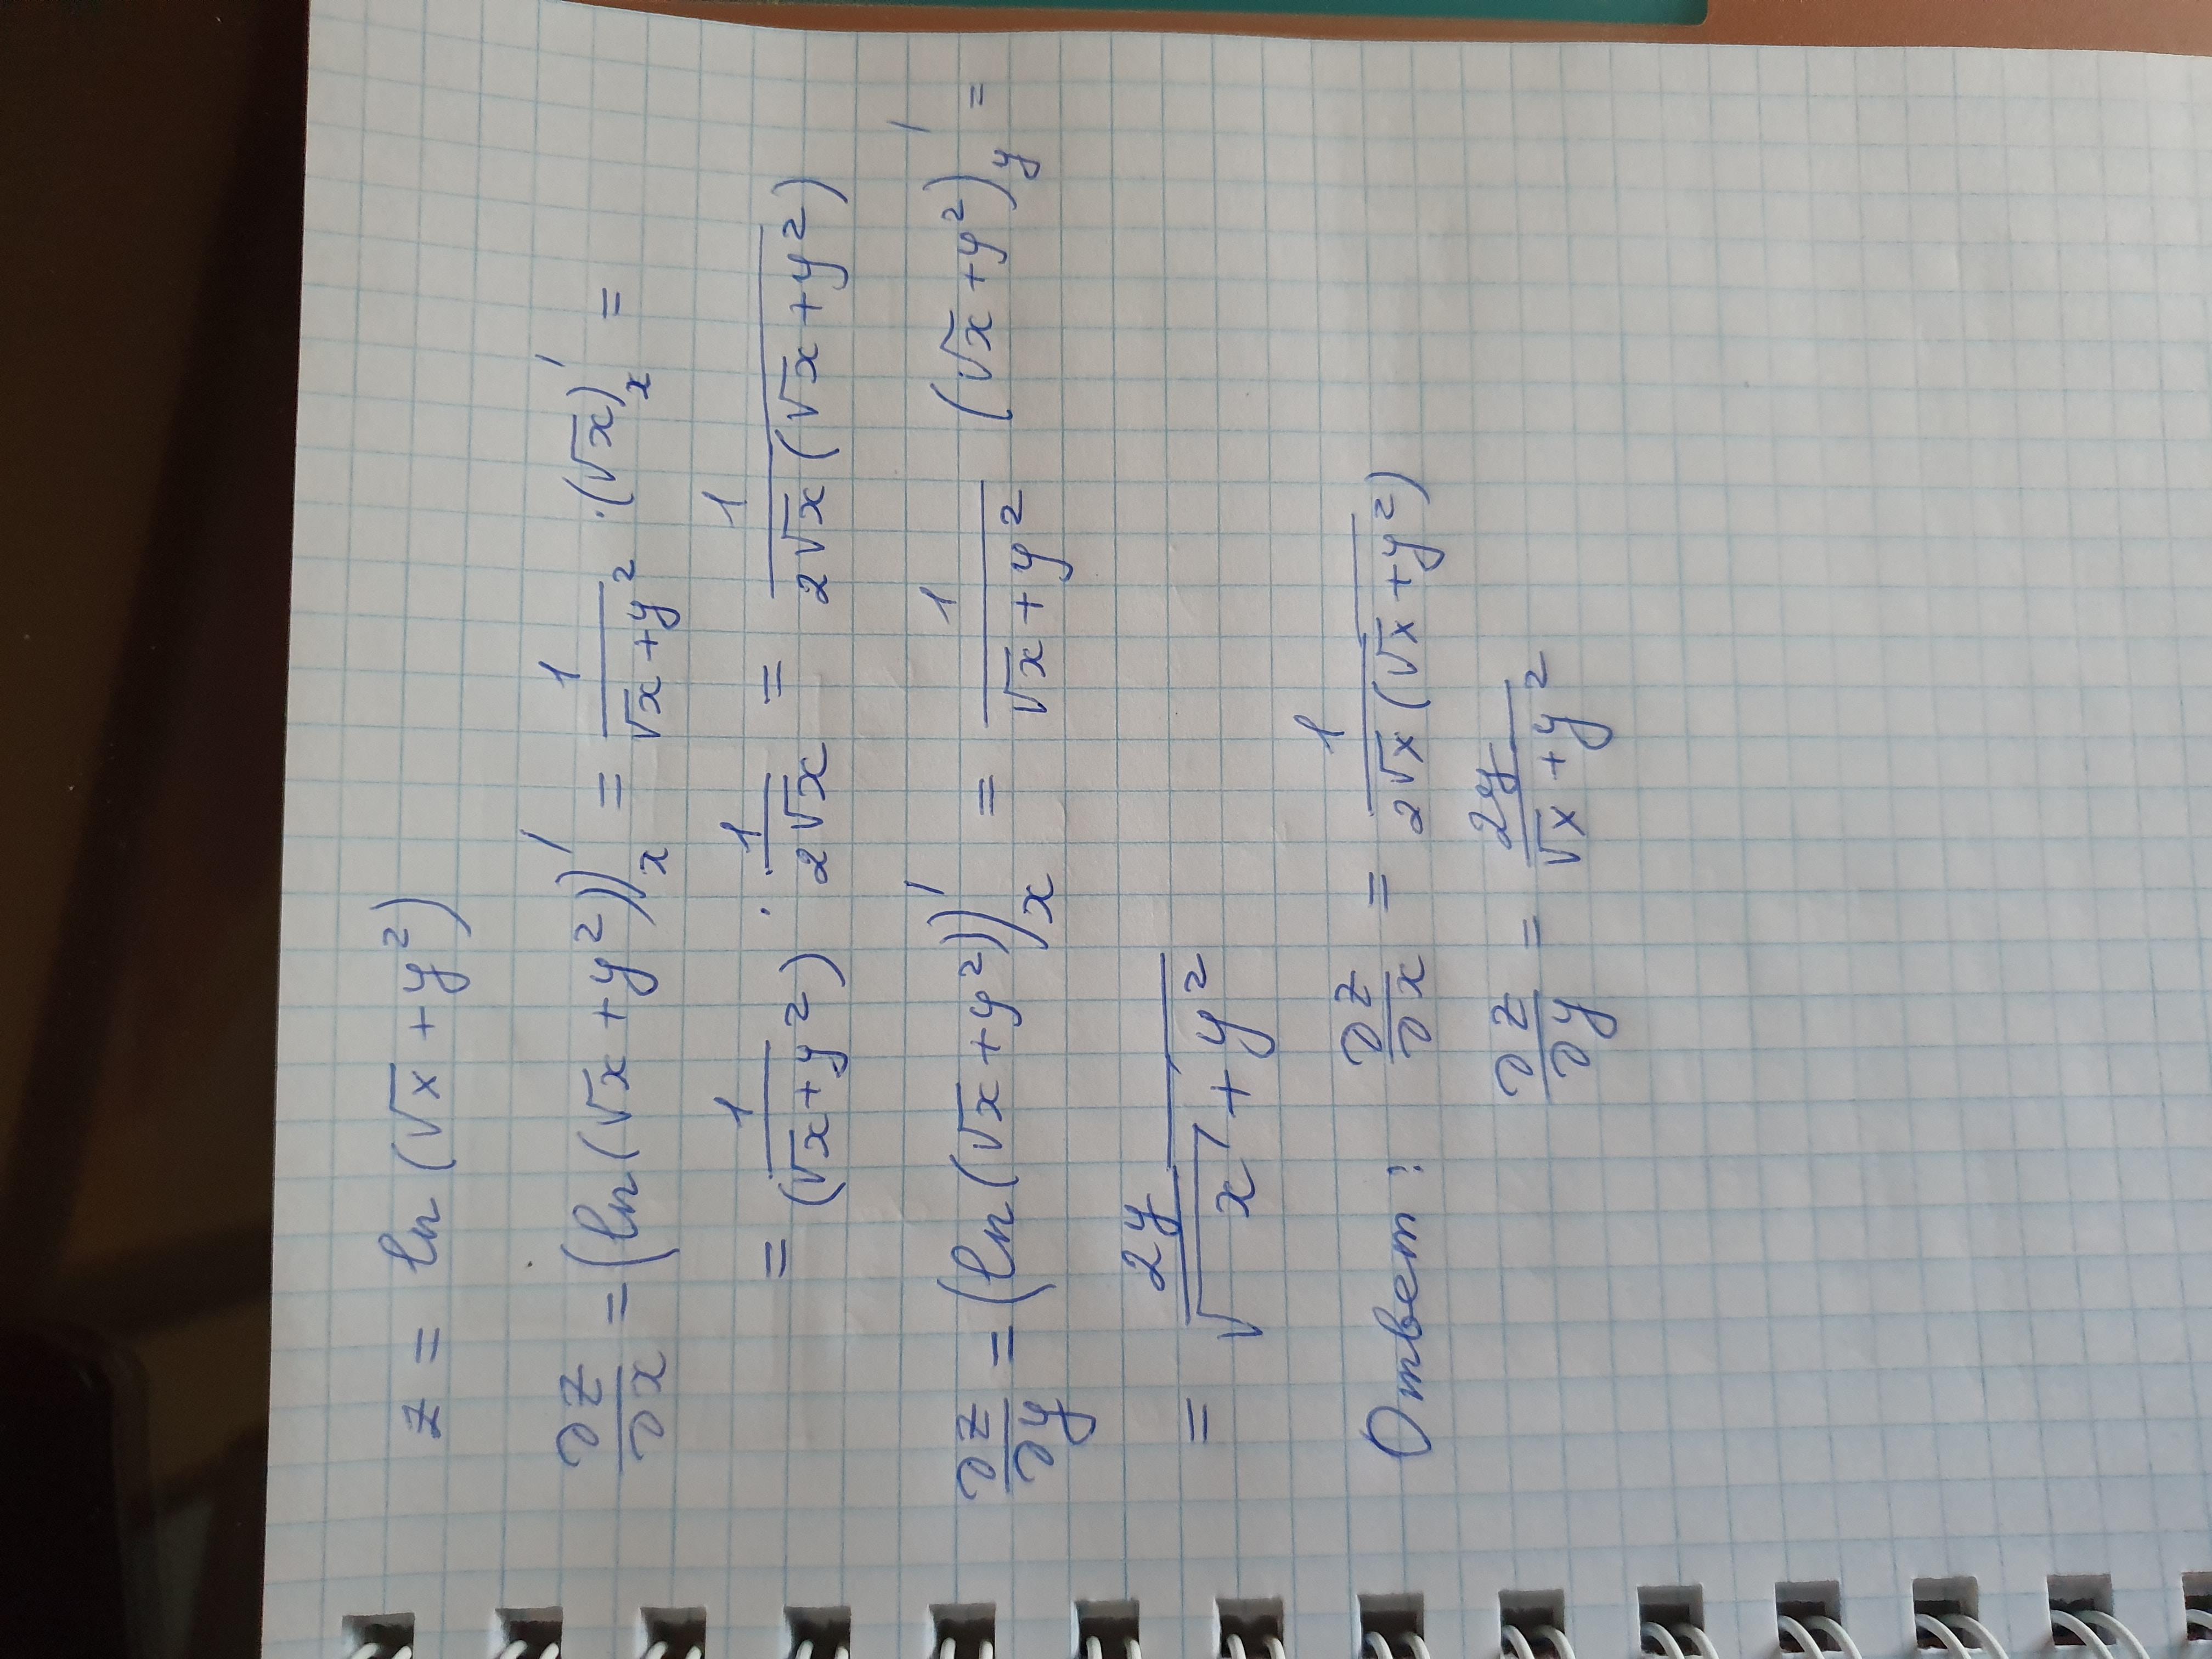 z = ln(√x + y²)
∂z/∂x = (ln(√x + y²))'ₓ = 1/(√x + y²) · (√x)'ₓ =
= 1/(√x + y²) · 1/(2√x) = 1/(2√x(√x + y²))
∂z/∂y = (ln(√x + y²))'ₓ = 1/(√x + y²) (√x + y²)'ᵧ =
= 2y/(√x + y²)
Ответ: ∂z/∂x = 1/(2√x(√x + y²))
∂z/∂y = 2y/(√x + y²)